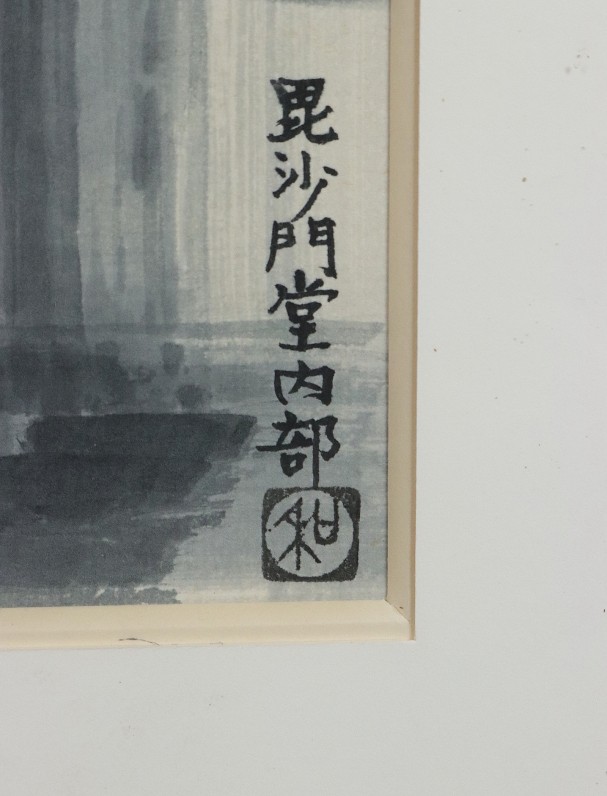 毘沙門堂内部
和